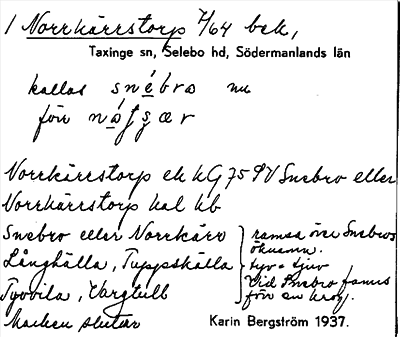 1 Norrkärrstorp 7/64 bek,
Taxinge sn, Selebo hd, Södermanlands län
kallas snébro nu
förr
Norrkärrstorp ek kG 75 PV Snebro eller
Norrkärrstorp kal kb
Snebro eller Norrkärr
Långhälla, Tuppskälla
Tyvvila, Vargtull
Marken slutar
ramsa över Snebros
ökenamn.
tyv = tjuv
Vid Snebro fanns
förr en krog.
Karin Bergström 1937.